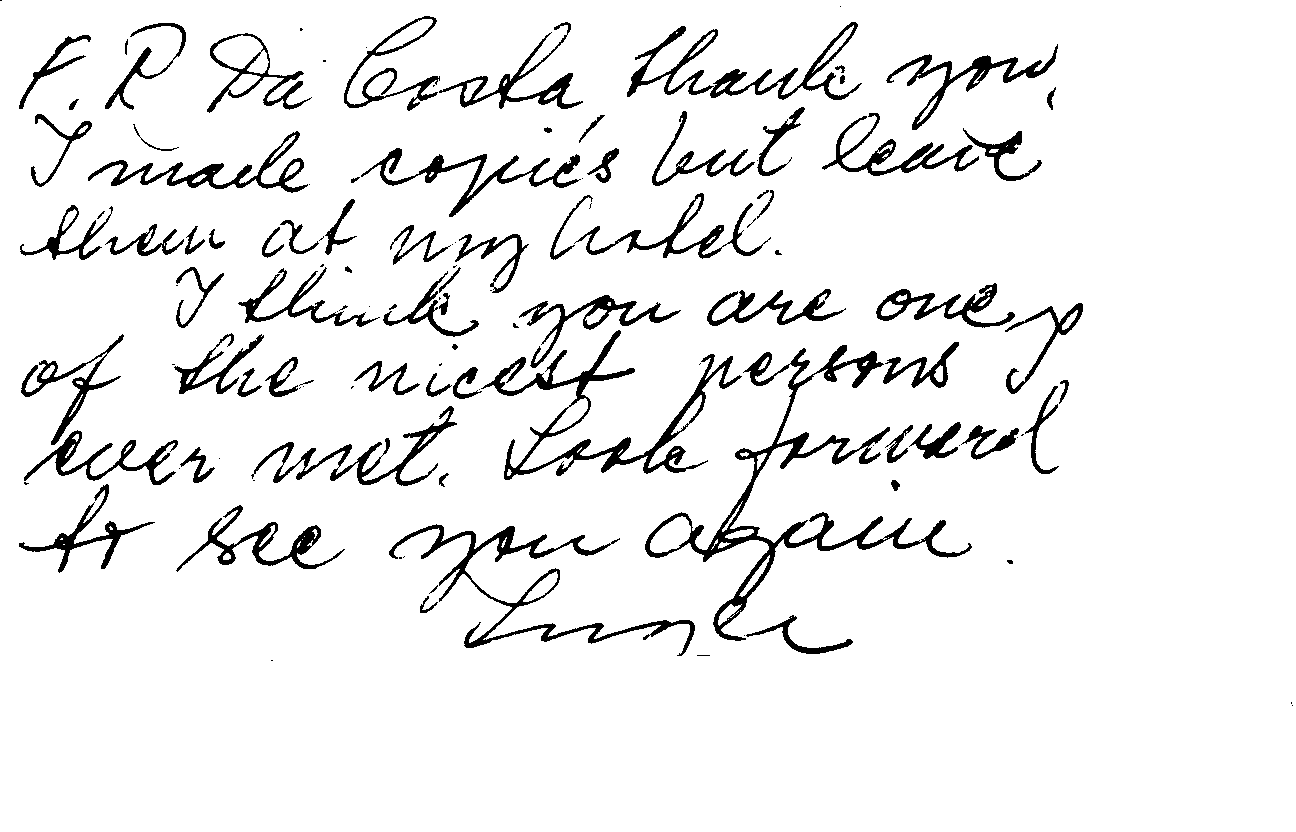 F. R Da Costa, thank you,
I made copies but leave
them at my hotel.
I think you are one
of the nicest persons I
ever met. Look forward
to see you again.